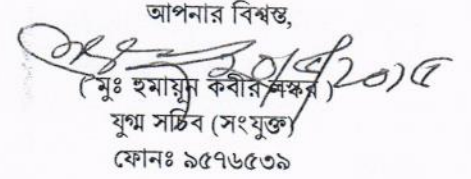 আপনার বিশ্বস্ত,
20/5/2015
( মুঃ হুমায়ূন কবীর লস্কর )
যুগ্ম সচিব (সংযুক্ত)
ফোনঃ ৯৫৭৬৫৩৯